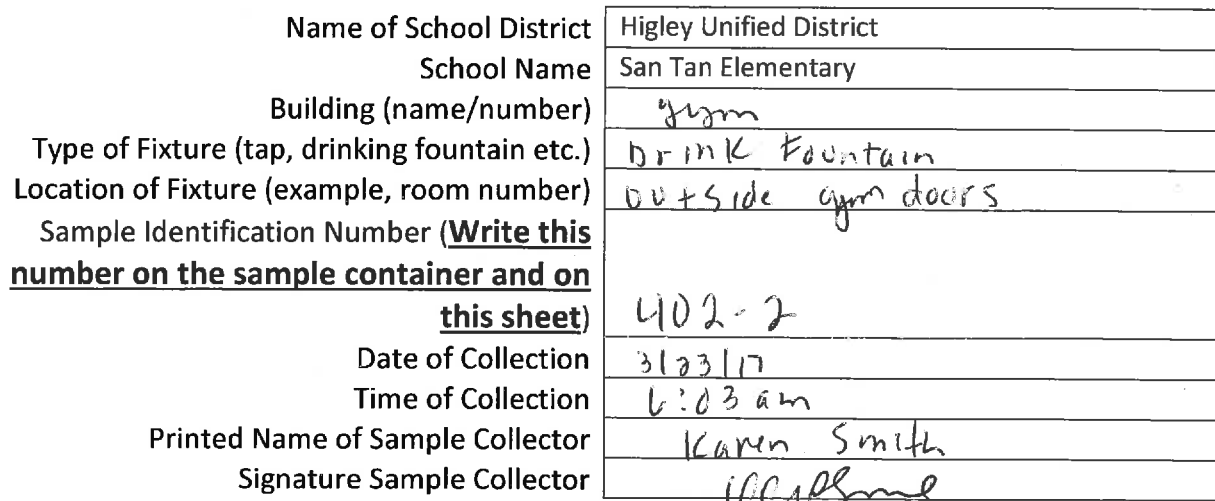 Name of School District Higley Unified District
School Name San Tan Elementary
Building (name/number) gym
Type of Fixture (tap, drinking fountain etc.) Drink Fountain
Location of Fixture (example, room number) Outside gym doors
Sample Identification Number (Write this
number on the sample container and on
this sheet) 402-2
Date of Collection 3/23/17
Time of Collection 6:03 am
Printed Name of Sample Collector Karen Smith
Signature Sample Collector